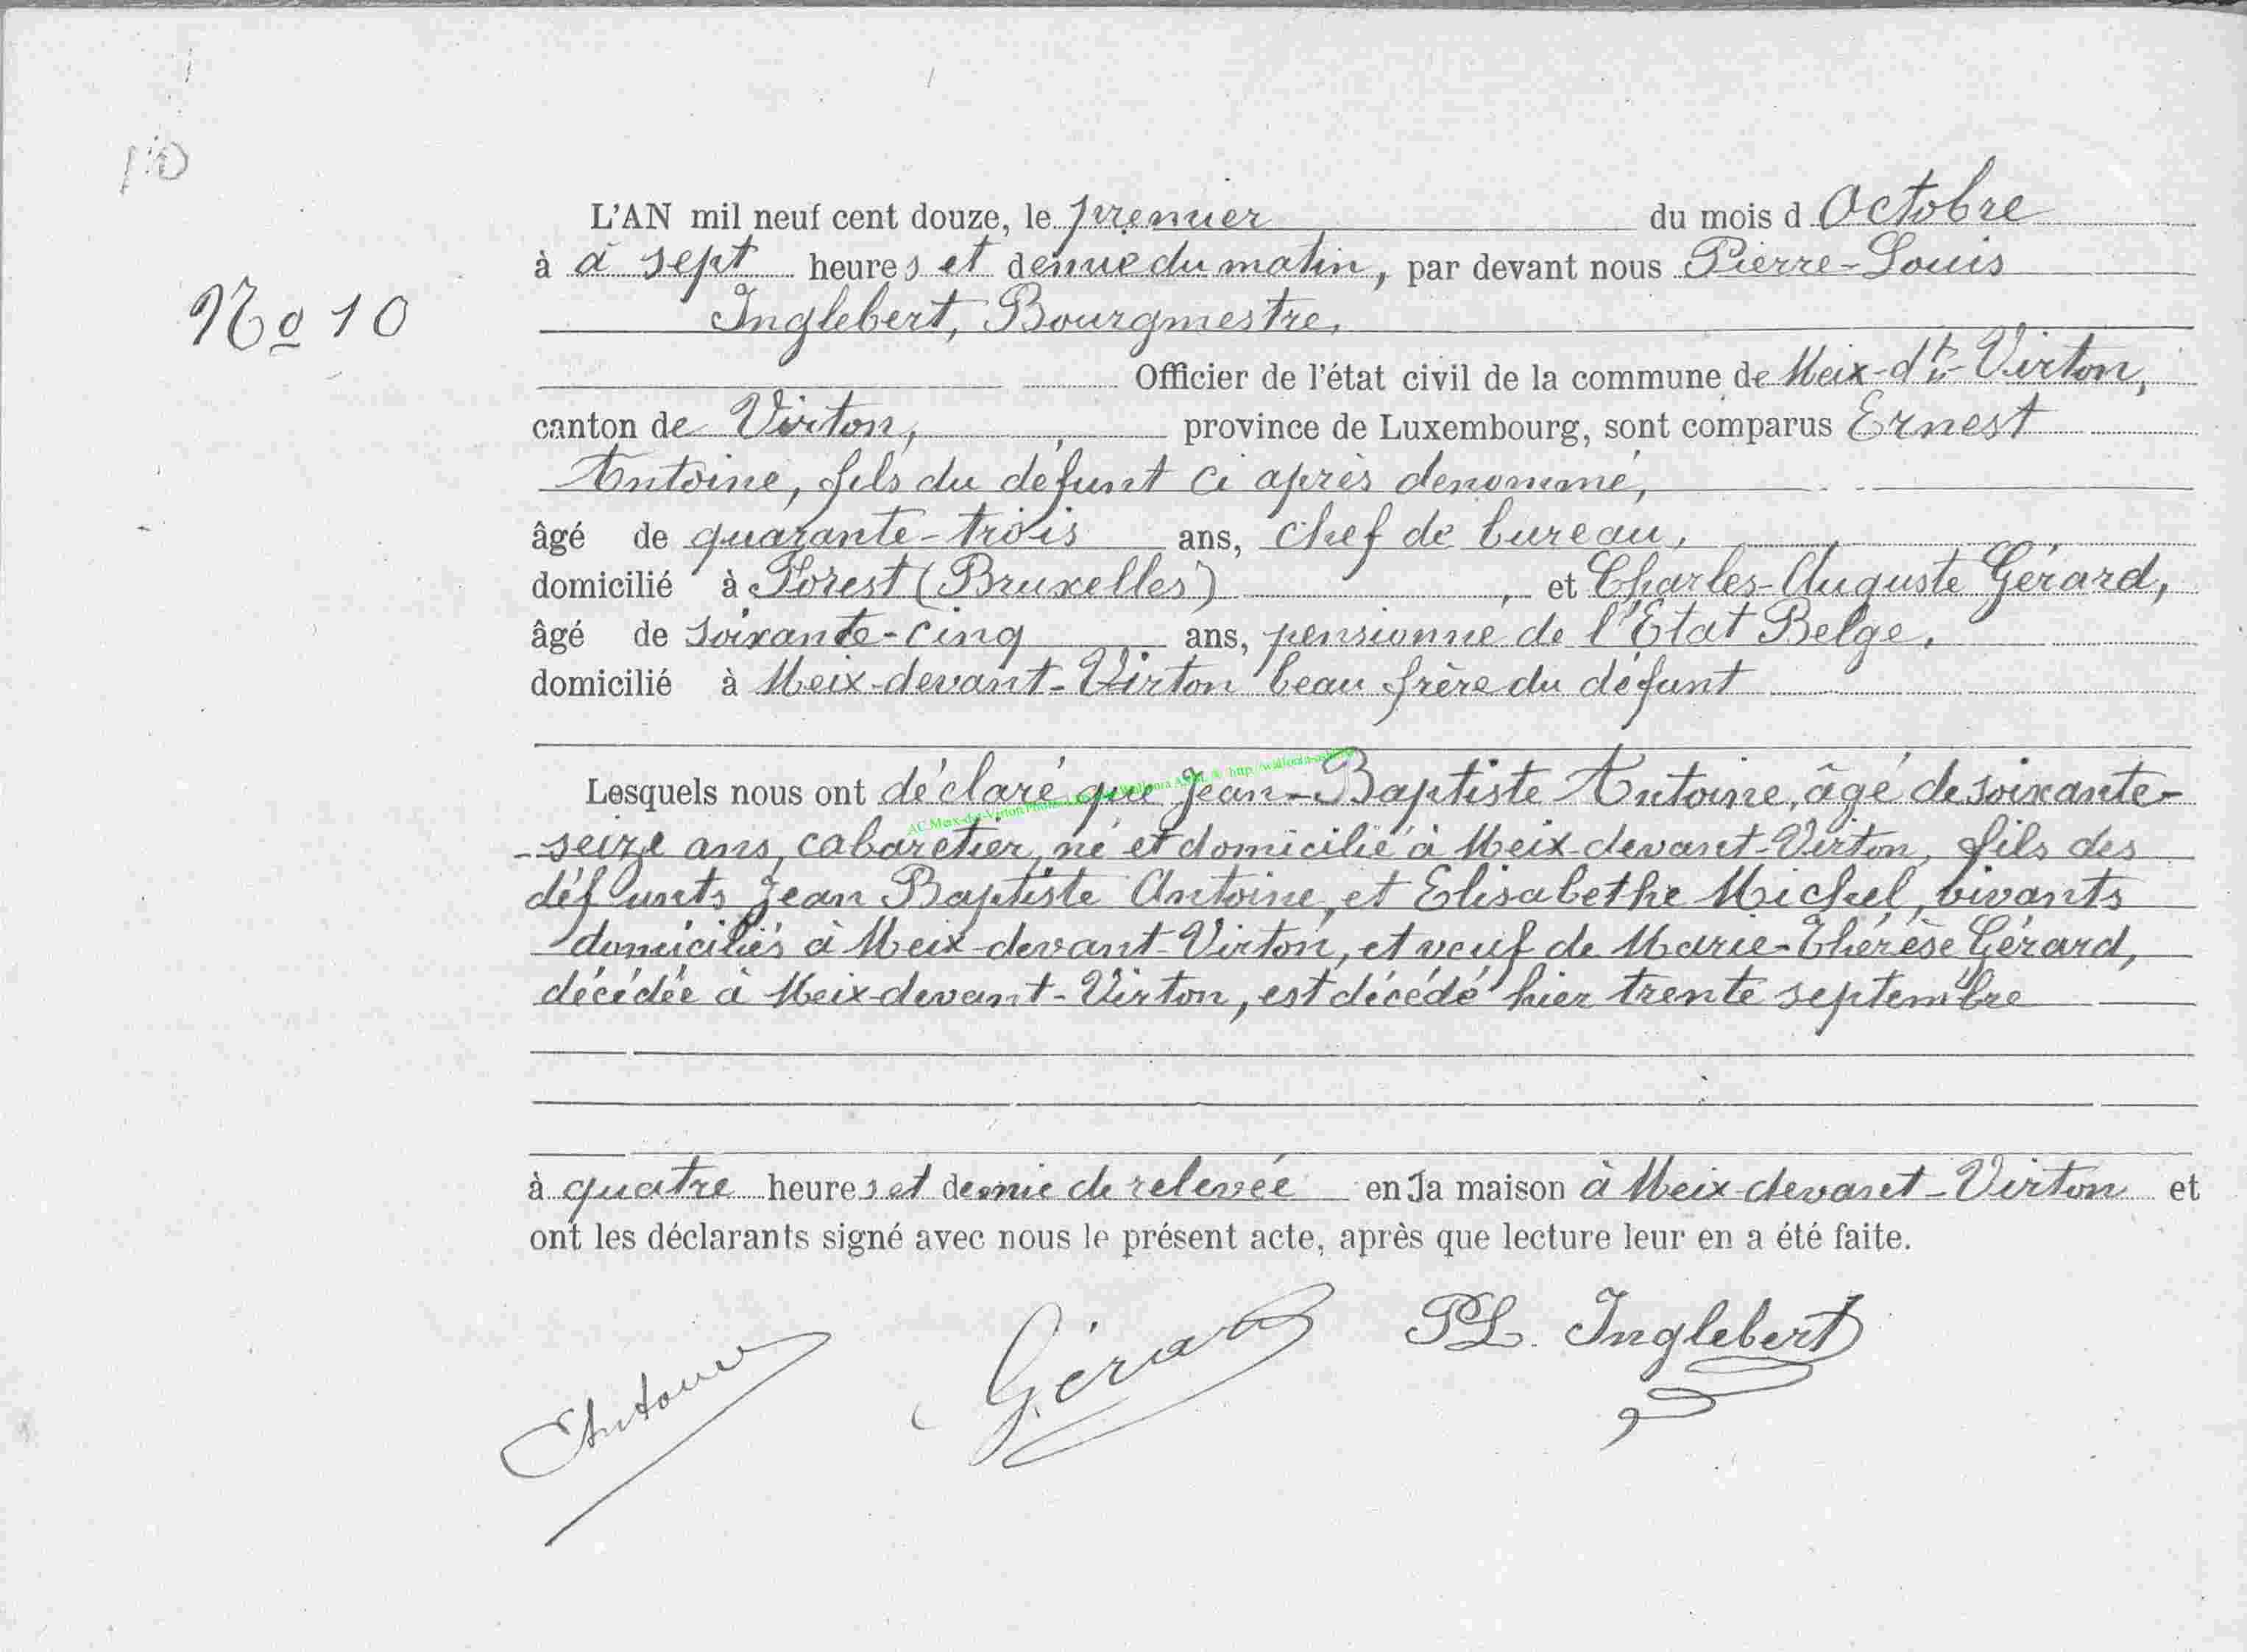 10
L'AN mil neuf cent douze, le premier du mois d Octobre
à à sept heures et demie du matin, par devant nous Pierre-Louis
Nº 10
Inglebert, Bourgmestre,
Officier de l'état civil de la commune de Meix-dt-Virton,
canton de Virton, province de Luxembourg, sont comparus Ernest
Antoine, fils du défunt ci après denommé,
âgé de quarante-trois ans, chef de bureau,
domicilié à Forest (Bruxelles), et Charles-Auguste Gérard,
âgé de soixante-cinq ans, pensionné de l'Etat Belge,
domicilié à Meix-devant-Virton beau frère du défunt
Lesquels nous ont déclaré que Jean-Baptiste Antoine, âgé de soixante-
-seize ans, cabaretier, né et domicilié à Meix-devant-Virton, fils des
défunts Jean Baptiste Antoine, et Elisabethe Michel, vivants
domiciliés à Meix-devant-Virton, et veuf de Marie-Thérèse Gérard,
décédée à Meix-devant-Virton, est décédé hier trente septembre
à quatre heures et demie de relevée en sa maison à Meix-devant-Virton et
ont les déclarants signé avec nous le présent acte, après que lecture leur en a été faite.
Antoine Gérard PL. Inglebert